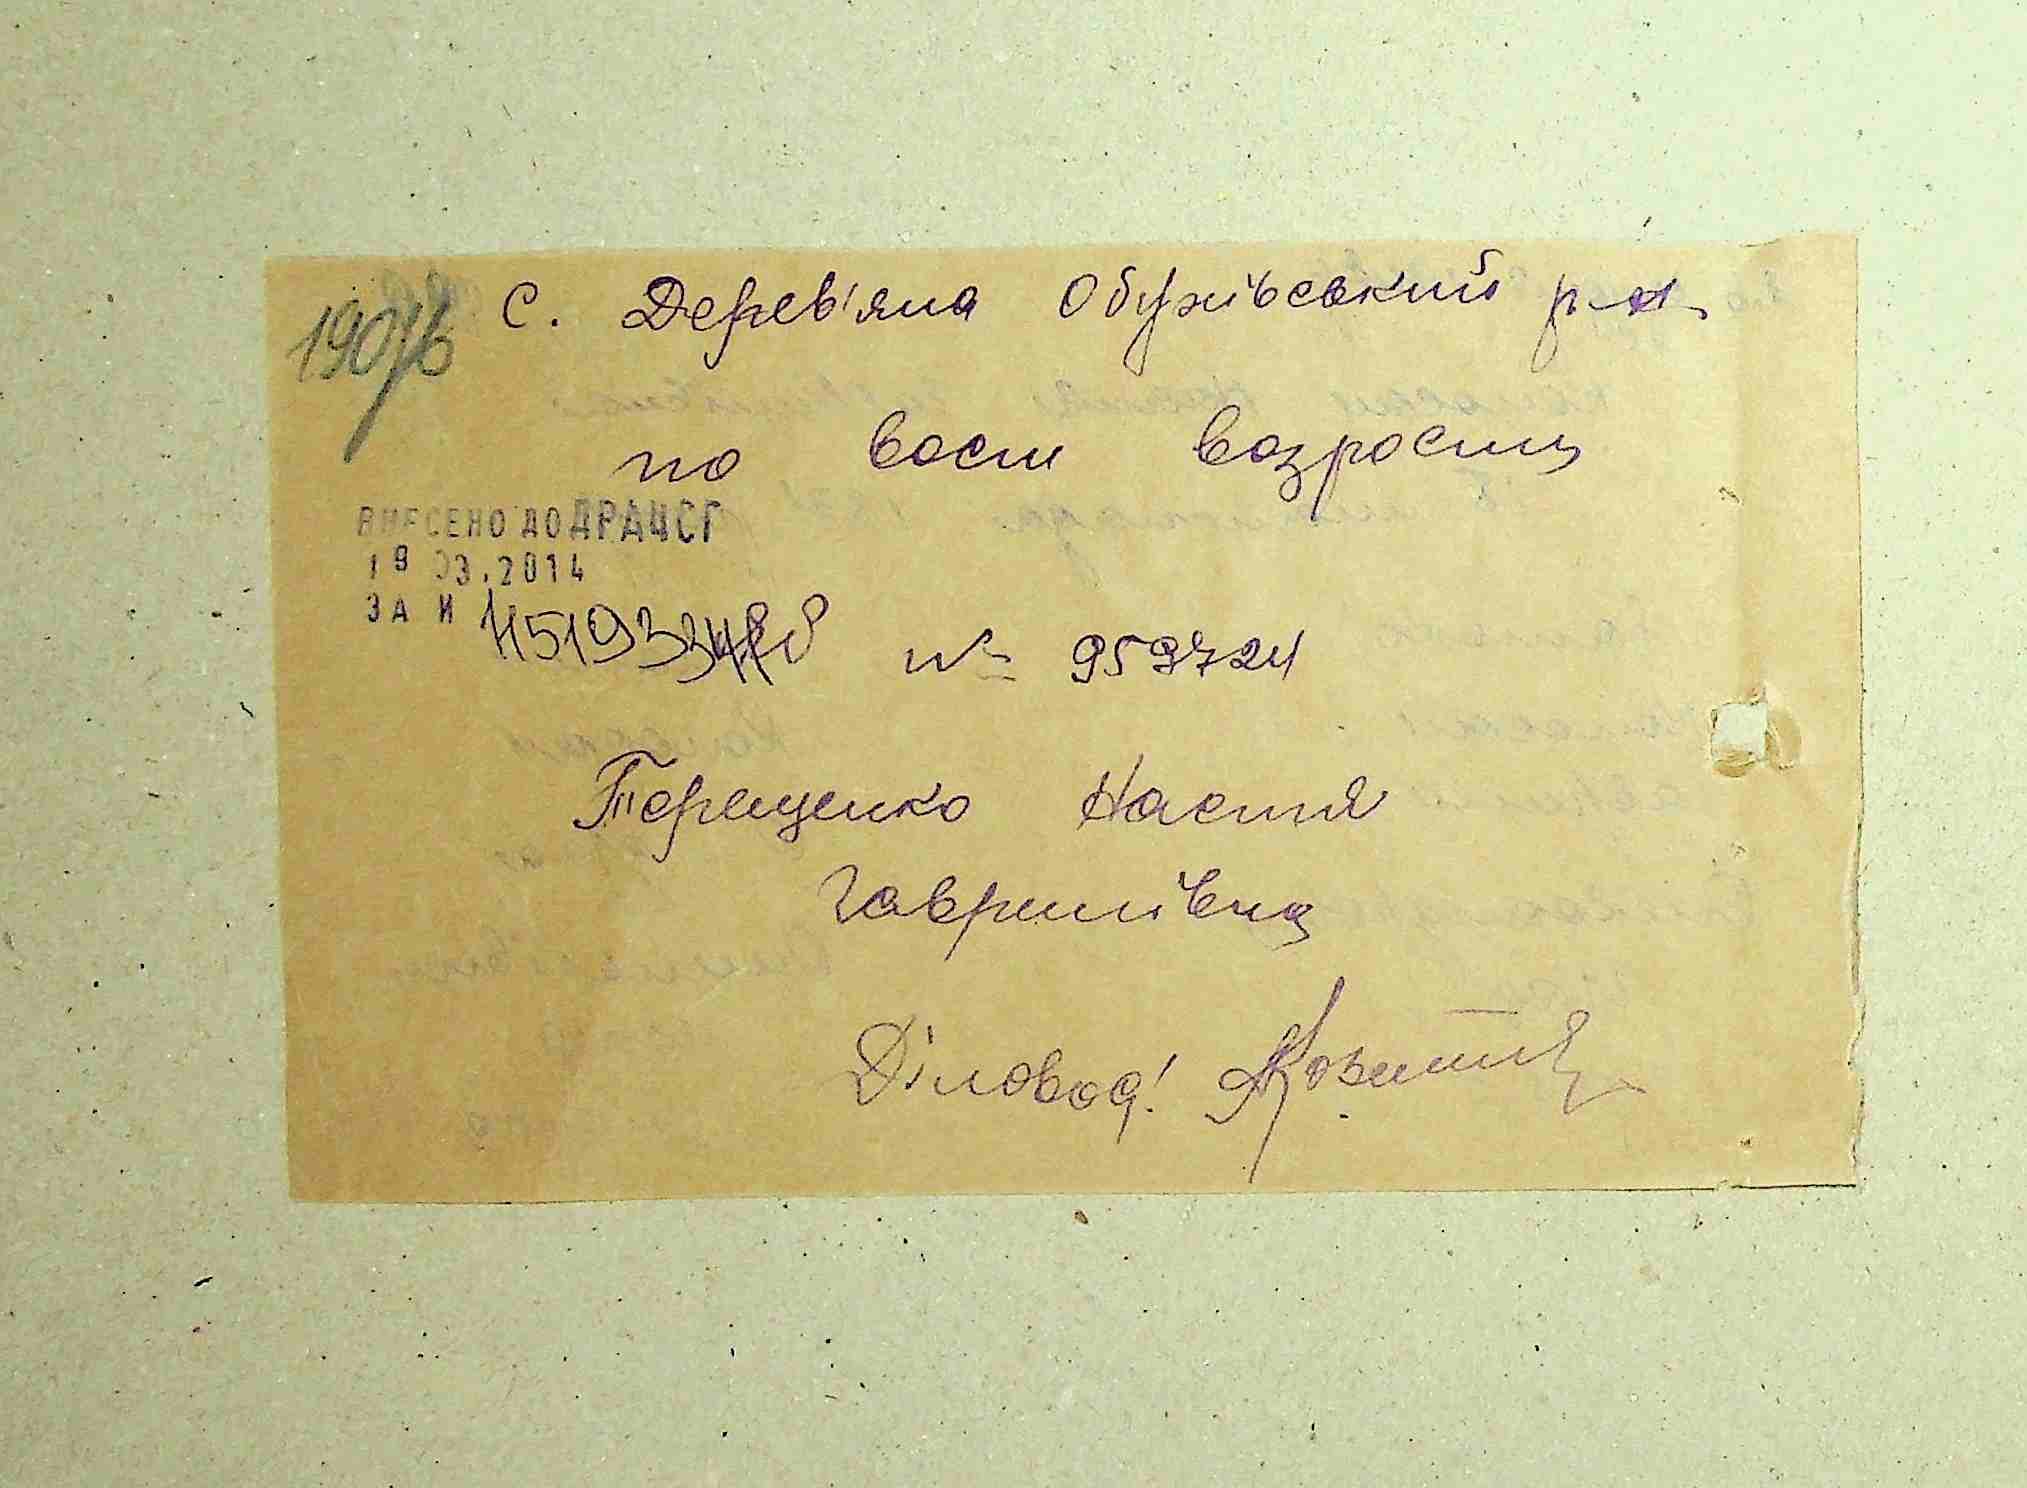 с. Дерев'яна Обухівський р-н.
по восм возрости
ВНЕСЕНО ДО ДРАЦСГ
19 03.2014
ЗА И
№ 959724
Терещенко Настя
Гаврилівна
Діловод!